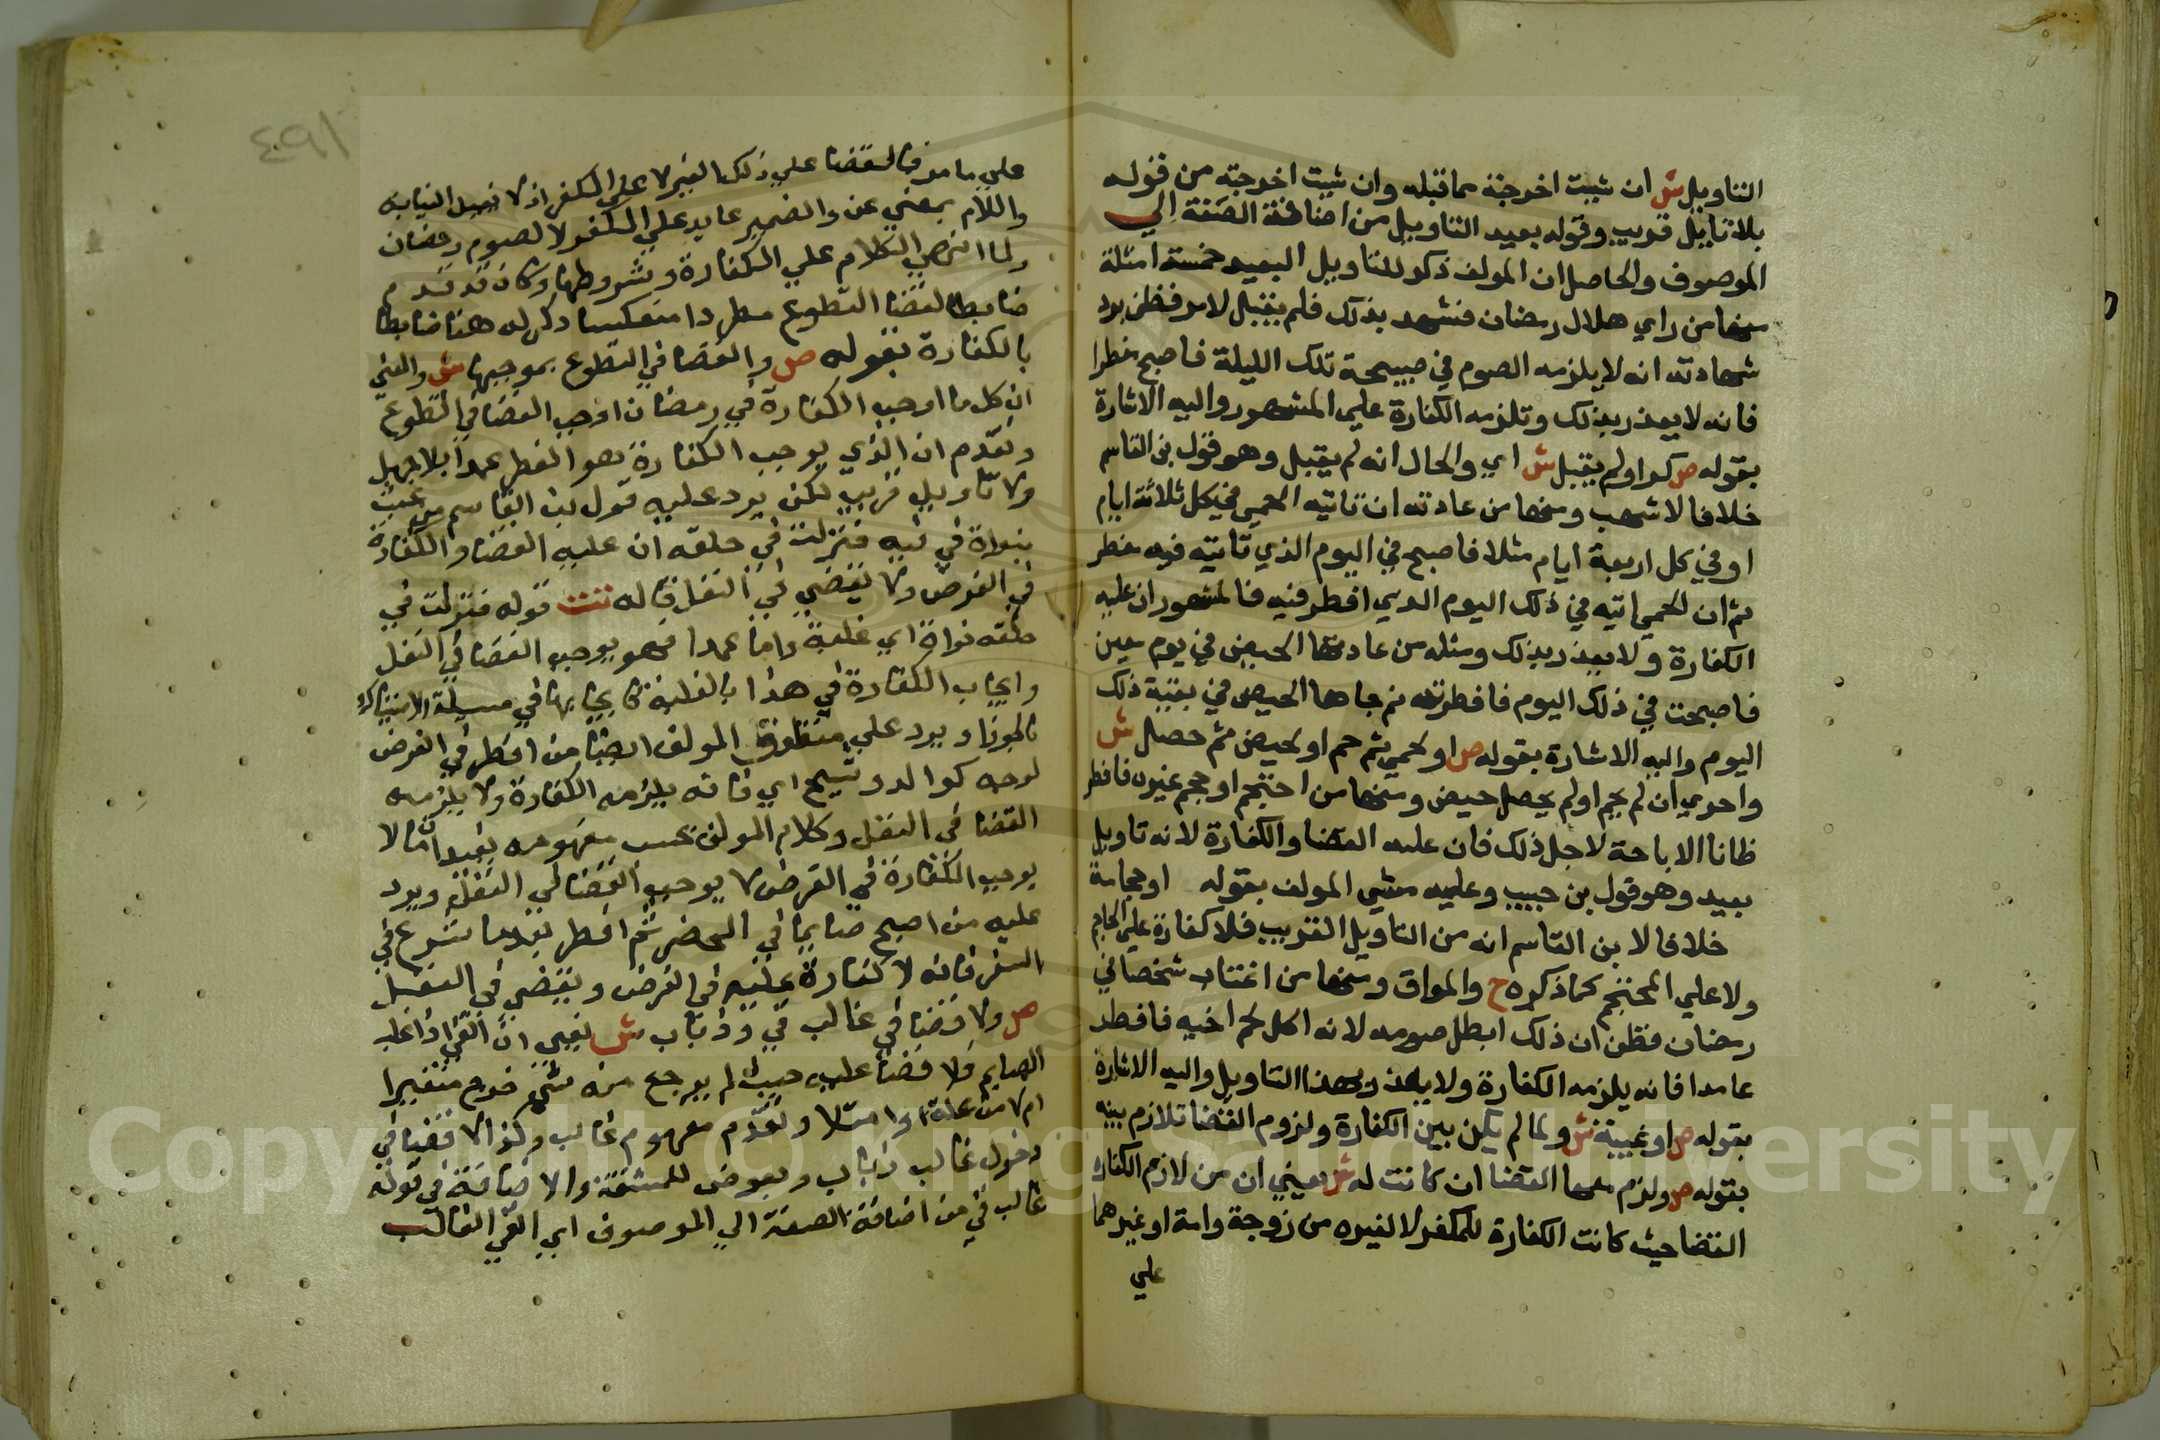 التاويل ش ان شيت اخرجته مما قبله وان شيت اخرجته من قوله
بلا تاويل قريب وقوله بعيد التاويل من اضافة الصفة الي
الموصوف والحاصل ان المولف ذكر للتاويل البعيد خمسة امثلة
منها من راي هلال رمضان فشهد بذلك فلم يقبل لامر فظن برد
شهادته انه لا يلزمه الصوم في صبيحة تلك الليلة فاصبح مفطرا
فانه لا يعذر بذلك وتلزمه الكفارة علي المشهور واليه الاشارة
بقوله ص كراو لم يقبل ش اي والحال انه لم يقبل وهو قول بن القاسم
خلافا لاشهب ومنها من عادته ان تاتيه الحمي في كل ثلاثة ايام
او في كل اربعة ايام مثلا فاصبح في اليوم الذي تاتيه فيه مفطر
ثم ان الحمي اتيه في ذلك اليوم الذي افطر فيه فالمشهور ان عليه
الكفارة ولا يعذر بذلك ومثله من عادتها الحيض في يوم معين
فاصبحت في ذلك اليوم فافطرته ثم جاها الحيض في بقية ذلك
اليوم واليه الاشارة بقوله ص او لحمي ثم حم او لحيض ثم حصل ش
واحري ان لم يحم او لم يحصل حيض ومنها من احتجم او حجم غيره فافطر
ظانا الاباحة لاجل ذلك فان عليه القضا والكفارة لانه تاويل
بعيد وهو قول بن حبيب وعليه مشي المولف بقوله او حجامة
خلافا لابن القاسم انه من التاويل القريب فلا كفارة علي الحاجم
ولا علي المحتجم كما ذكره ح والمواق ومنها من اغتاب شخصا في
رمضان فظن ان ذلك ابطل صومه لانه اكل لحم اخيه فافطر
عامدا فانه يلزمه الكفارة ولا يعذر بهذا التاويل واليه الاشارة
بقوله ص او غيبة ش ولما لم يكن بين الكفارة ولزوم القضا تلازم بينه
بقوله ص ولزم معها القضا ان كانت له ش يعني ان من لازم الكفارة
القضا حيث كانت الكفارة للمكفر لا لغيره من زوجة وامة او غيرهما
علي
علي ما مر فالقضا علي ذلك الغير لا علي المكفر اذ لا تقبل النيابة
واللام بمعني عن والضمير عايد علي المكفر لا لصوم رمضان
ولما انهي الكلام علي الكفارة وشروطها وكان قد قدم
ضابطا لقضا التطوع مطردا منعكسا ذكر له هنا ضابطا
بالكفارة بقوله ص والقضا في التطوع بموجبها ش والمعني
ان كل ما اوجب الكفارة في رمضان اوجب القضا في التطوع
وتقدم ان الذي يوجب الكفارة هو الفطر عمدا بلا جهل
ولا تاويل قريب لكن يرد عليه قول بن القاسم من عبث
بنواة في فيه فنزلت في حلقه ان عليه القضا والكفارة
في الفرض ولا يقضي في النفل قاله تت قوله فنزلت في
حلقه نواة اي غلبة واما عمدا فهو يوجب القضا في النفل
وايجاب الكفارة في هذا بالغلبة كايجابها في مسيلة الاستياك
بالجوزا ويرد علي منطوق المولف ايضا من افطر في الفرض
لوجه كوالد وشيخ اي فانه يلزمه الكفارة ولا يلزمه
القضا في النفل وكلام المولف بحسب مفهومه يفيد ان ما لا
يوجب الكفارة في الفرض لا يوجب القضا في النفل ويرد
عليه من اصبح صايما في الحضر ثم افطر بعد ما شرع في
السفر فانه لا كفارة عليه في الفرض ويقضي في النفل
ص ولا قضا في غالب قي وذباب ش يعني ان القي اذا غلب
الصايم فلا قضا عليه حيث لم يرجع منه شي خرج متغيرا
ام لا من علة او امتلا وتقدم مفهوم غالب وكذا لا قضا في
دخول غالب ذباب وبعوض للمشقة والاضافة في قوله
غالب قي من اضافة الصفة الي الموصوف اي القي الغالب